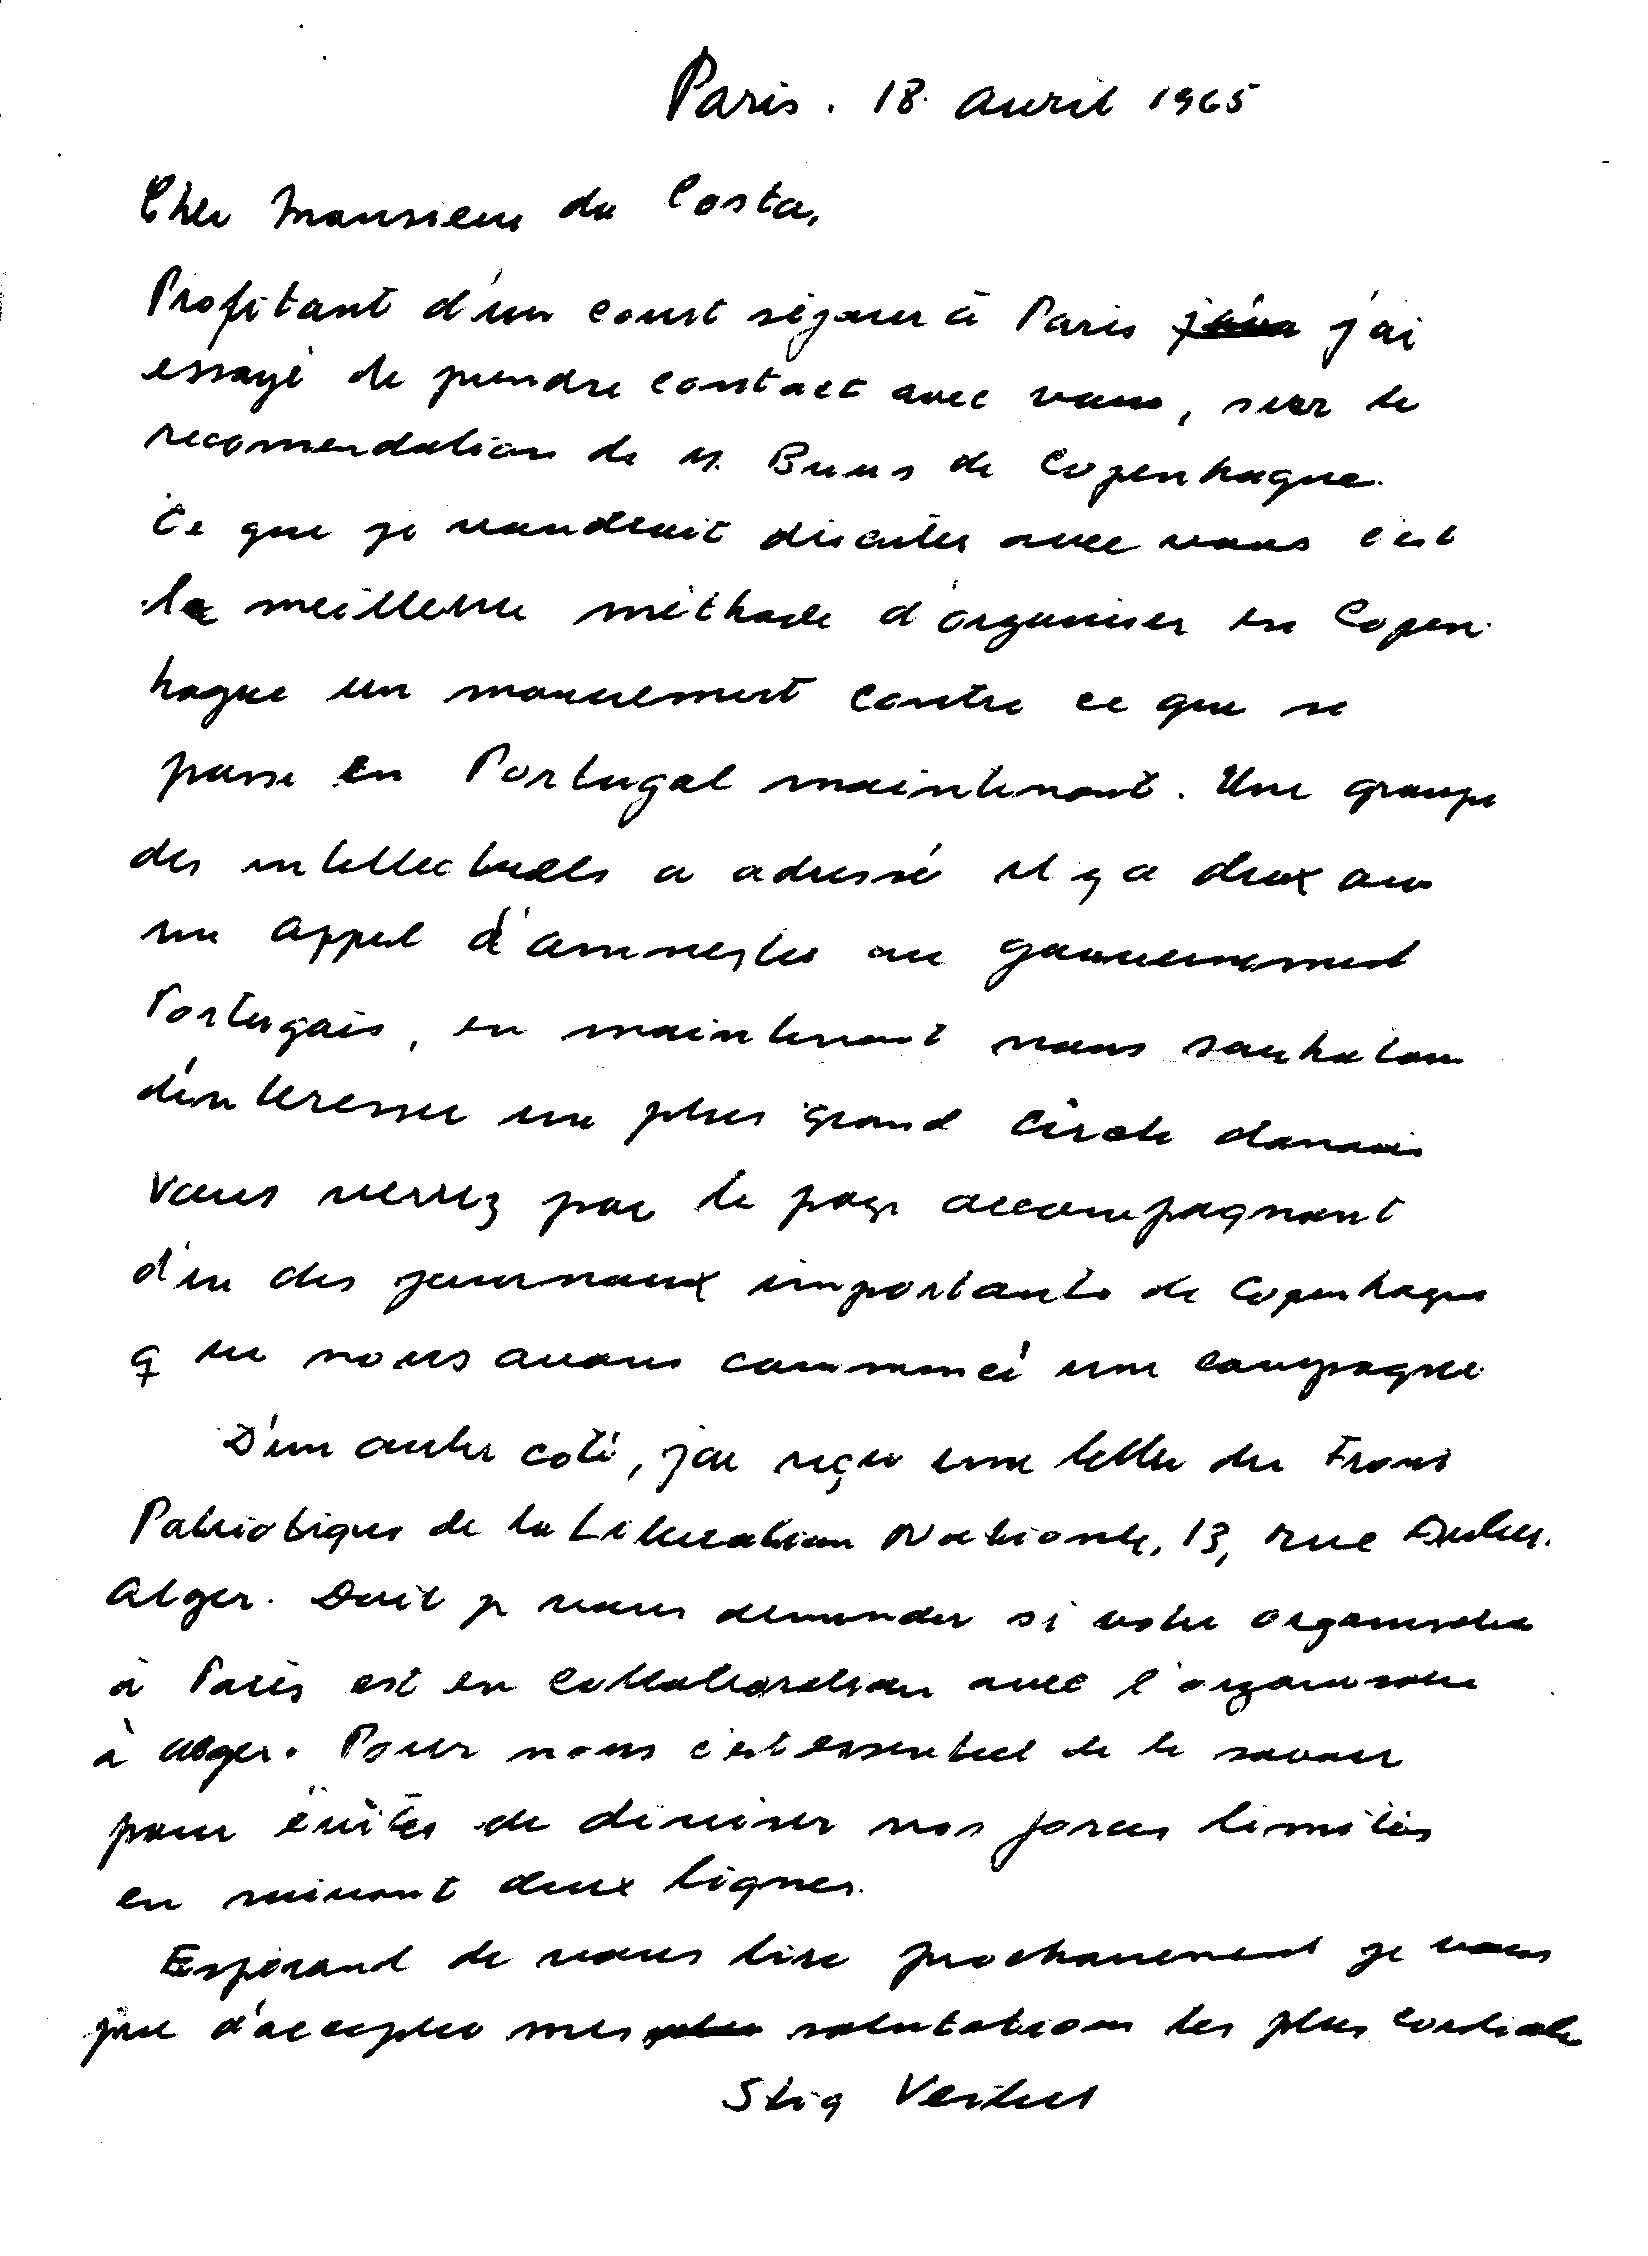 Paris. 18. Avril 1965
Cher Monsieur da Costa,
Profitant d'un court séjour à Paris j'ai
essayé de prendre contact avec vous, sur le
recomendation de M. Buus de Copenhague.
Ce que je voudrait discuter avec vous c'est
la meilleure méthode d'organiser en Copen-
hague un mouvement contre ce que se
passe en Portugal maintenant. Une groupe
des intellectuels a adressé il y a deux ans
un appel d'amnestie au gouvernement
Portugais, en maintenant nous souhaitons
d'interesser un plus grand circle danois
Vous verrez par le page accompagnant
d'un des journaux importants de Copenhague
que nous avons commencé une campagne
D'un autre coté, j'ai reçu une lettre du Front
Patriotique de la Liberation Nationale, 13, rue
Alger. Doit je vous demander si votre organisation
à Paris est en collaboration avec l'organisation
à Alger. Pour nous c'est essentiel de le savoir
pour éviter de diviser nos forces limités
en suivant deux lignes.
Espérant de vous lire prochainement je vous
prie d'accepter mes salutations les plus cordiale
Stig